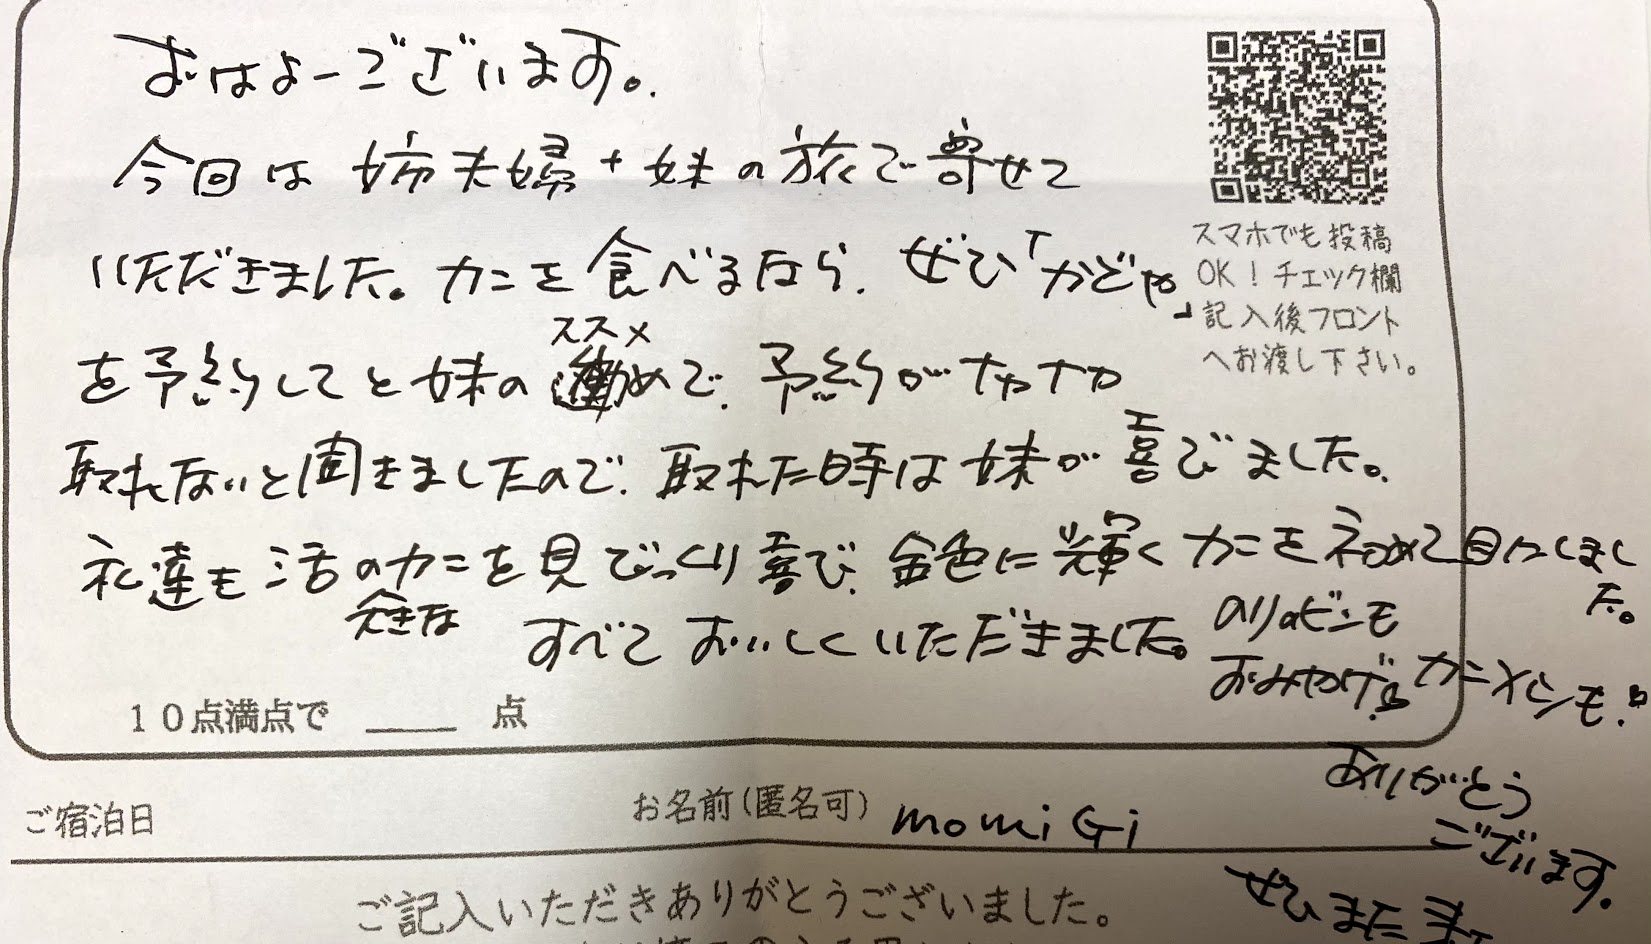 おはよーございます。
今回は姉夫婦+妹の旅で寄せて
いただきました。カニを食べるなら、ぜひ「かどや」
を予約してと妹の勧めで、予約がナカナカ
ススメ
取れないと聞きましたので、取れた時は妹が喜びました。
私達も活のカニを見びっくり喜び、金色に輝くカニを初めて目にしました。
大きな
すべておいしくいただきました。
のりのビンも
おみやげ カニメシも!!
ありがとう
ございます。
ぜひまた
スマホでも投稿
OK!チェック欄
記入後フロント
へお渡し下さい。
10点満点で ____ 点
ご宿泊日
お名前(匿名可) momiGi
ご記入いただきありがとうございました。